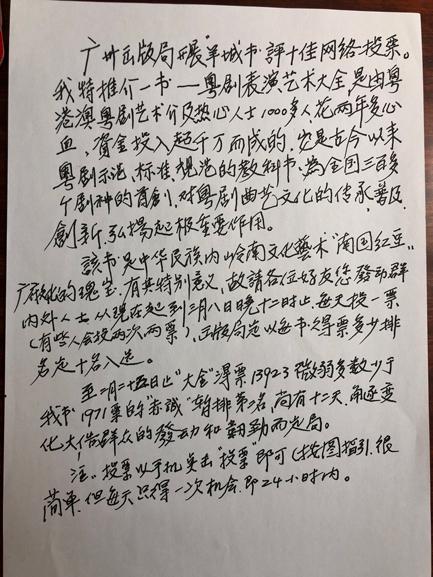 广州出版局开展"羊城书評十佳网络投票。
我特推介一书——粤剧表演艺术大全是由粤
港澳粤剧艺术介及热心人士1000多人花两年多心
血、資金投入超千万而成的,它是古今以来
粤剧示范、标准、规范的教科书,為全国三百多
个剧种的首創,对粤剧曲艺文化的传承、普及、
創新、弘揚起极重要作用。
該书是中华民族内岭南文化藝術"南国红豆"
瑰宝,有其特别意义,敬請各位好友您發動群
内外人士从现在起到三月八日晚十二时止,每天投一票
(有些人会投两次、两票),出版局是以每书得票多少排
名定十名入选。
至二月二十五日止"大全"得票13923微弱多数少于
我书1971票的"赤誠"暂排第2名,尚有十二天,角逐变
化大,借群众的發动和翻勁而定局。
注:投票以手机点击"投票"即可(按图指引,很
简单,但每天只得一次机会,即24小时内。